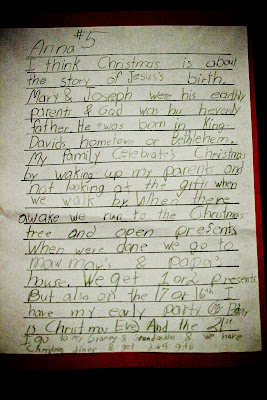 #5
Anna
I think Christmas is about
the story of Jesus's birth.
Mary & Joseph were his earthly
parent & God was his hevenly
father. He was born in King
Davids hometown or Bethlehem.
My family Celebrate's Christmas
by waking up my parents and
not looking at the gifts when
we walk by. When there
awake we run to the Christmas
tree and open presents
When were done we go to
maw maw's & papa's
house. We get 1 or 2 presents
But also on the 17 or 16th I
have my early party
is Christmas Eve) And the 21st
I go to my Granny & Grandaddy's & we have
Christmas diner & get gifts